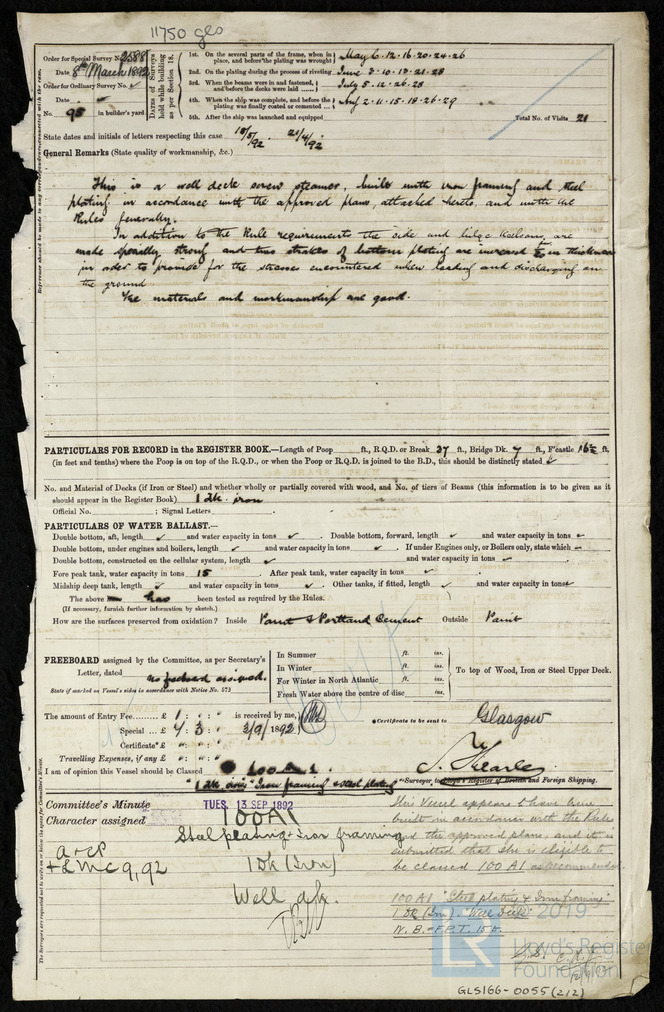 11750 gls
Order for Special Survey No. 2588
Date 8th March 1892
Order for Ordinary Survey No. ✓
Date ✓
No. 95 in builder's yard.
DATES of Surveys held while building as per Section 18.
1st. On the several parts of the frame, when in place, and before the plating was wrought May 6. 12. 16. 20. 24. 26
2nd. On the plating during the process of riveting June 3. 10. 17. 21. 28
3rd. When the beams were in and fastened, and before the decks were laid July 5. 12. 26. 28
4th. When the ship was complete, and before the plating was finally coated or cemented Aug 2. 11. 15. 18. 26. 29
5th. After the ship was launched and equipped
Total No. of Visits 21
State dates and initials of letters respecting this case 10/5/92. 21/4/92
General Remarks (State quality of workmanship, &c.)
This is a well deck screw steamer, built with iron framing and steel
plating in accordance with the approved plans, attached hereto, and with the
Rules generally.
In addition to the Rule requirements the side and bilge keelsons are
made specially strong and two strakes of bottom plating are increased in thickness
in order to provide for the stresses encountered when loading and discharging on
the ground
The materials and workmanship are good.
PARTICULARS FOR RECORD in the REGISTER BOOK.—Length of Poop ft., R.Q.D. or Break 37 ft., Bridge Dk. 7 ft., F'castle 16½ ft.
(in feet and tenths) where the Poop is on top of the R.Q.D., or when the Poop or R.Q.D. is joined to the B.D., this should be distinctly stated ✓
No. and Material of Decks (if Iron or Steel) and whether wholly or partially covered with wood, and No. of tiers of Beams (this information is to be given as it
should appear in the Register Book) 1 dk. iron
Official No. ; Signal Letters
PARTICULARS OF WATER BALLAST.—
Double bottom, aft, length ✓ and water capacity in tons ✓. Double bottom, forward, length ✓ and water capacity in tons –
Double bottom, under engines and boilers, length ✓ and water capacity in tons ✓. If under Engines only, or Boilers only, state which –
Double bottom, constructed on the cellular system, length ✓ and water capacity in tons –
Fore peak tank, water capacity in tons 15. After peak tank, water capacity in tons ✓
Midship deep tank, length ✓ and water capacity in tons ✓. Other tanks, if fitted, length ✓ and water capacity in tons ✓
The above has been tested as required by the Rules.
(If necessary, furnish further information by sketch.)
How are the surfaces preserved from oxidation? Inside Paint & Portland Cement Outside Paint
FREEBOARD assigned by the Committee, as per Secretary's
Letter, dated no freeboard assigned.
State if marked on Vessel's sides in accordance with Notice No. 573
In Summer ft. ins.
In Winter ft. ins.
For Winter in North Atlantic ft. ins.
Fresh Water above the centre of disc ins.
To top of Wood, Iron or Steel Upper Deck.
The amount of Entry Fee £ 1 : " : " is received by me,
Special £ 4 : 3 : " 2/9/1892
Certificate* £ " : " : "
Travelling Expenses, if any £ " : " : "
*Certificate to be sent to Glasgow
I am of opinion this Vessel should be Classed 100 A1
"1 dk iron" "Iron framing & steel plating"
Surveyor to Lloyd's Register of British and Foreign Shipping.
Committee's Minute TUES. 13 SEP. 1892
Character assigned 100A1
Steel plating & Iron framing
1 Dk (Iron)
Well dk.
A & CP
+ LMC 9,92
This Vessel appears to have been
built in accordance with the Rules
and the approved plans, and it is
submitted that she is eligible to
be classed 100 A1 as recommended.
100 A1 "Steel plating & Iron framing"
1 Dk (Irn). Well Deck
W. B. = F.P.T. 15 t.
12/9/92
© 2019
LR
Lloyd's Register
Foundation
GLS166-0055 (2/2)